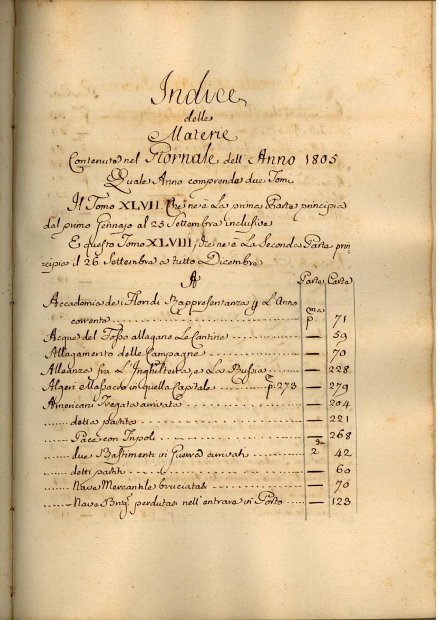 Indice
delle
Materie
Contenute nel Giornale dell'Anno 1805
Quale Anno comprende due Tomi
Il Tomo XLVII. che ne è La prima Parte principia
dal primo Gennajo al 25 Settembre inclusive
E questo Tomo XLVIII, che ne è La Seconda Parte prin-
cipia il 26 Settembre a tutto Dicembre
A
Parte Carte
Accademia de i Floridi Rappresentanza p L'Anno
corrente p.ma 71
Acque del Fosso allagano Le Cantine — 59
Allagamento delle Campagne — 70
Alleanza fra L'Inghilterra, e La Russia — 228
Algeri Massacro in quella Capitale p. 273 — 279
Americani Fregata arrivata — 204
detta partita — 221
Pace con Tripoli — 268
due Bastimenti in Guerra arrivati 2.da 42
detti partiti — 60
Nave Mercantile bruciatasi — 70
Nave perdutasi nell'entrare in Porto — 123